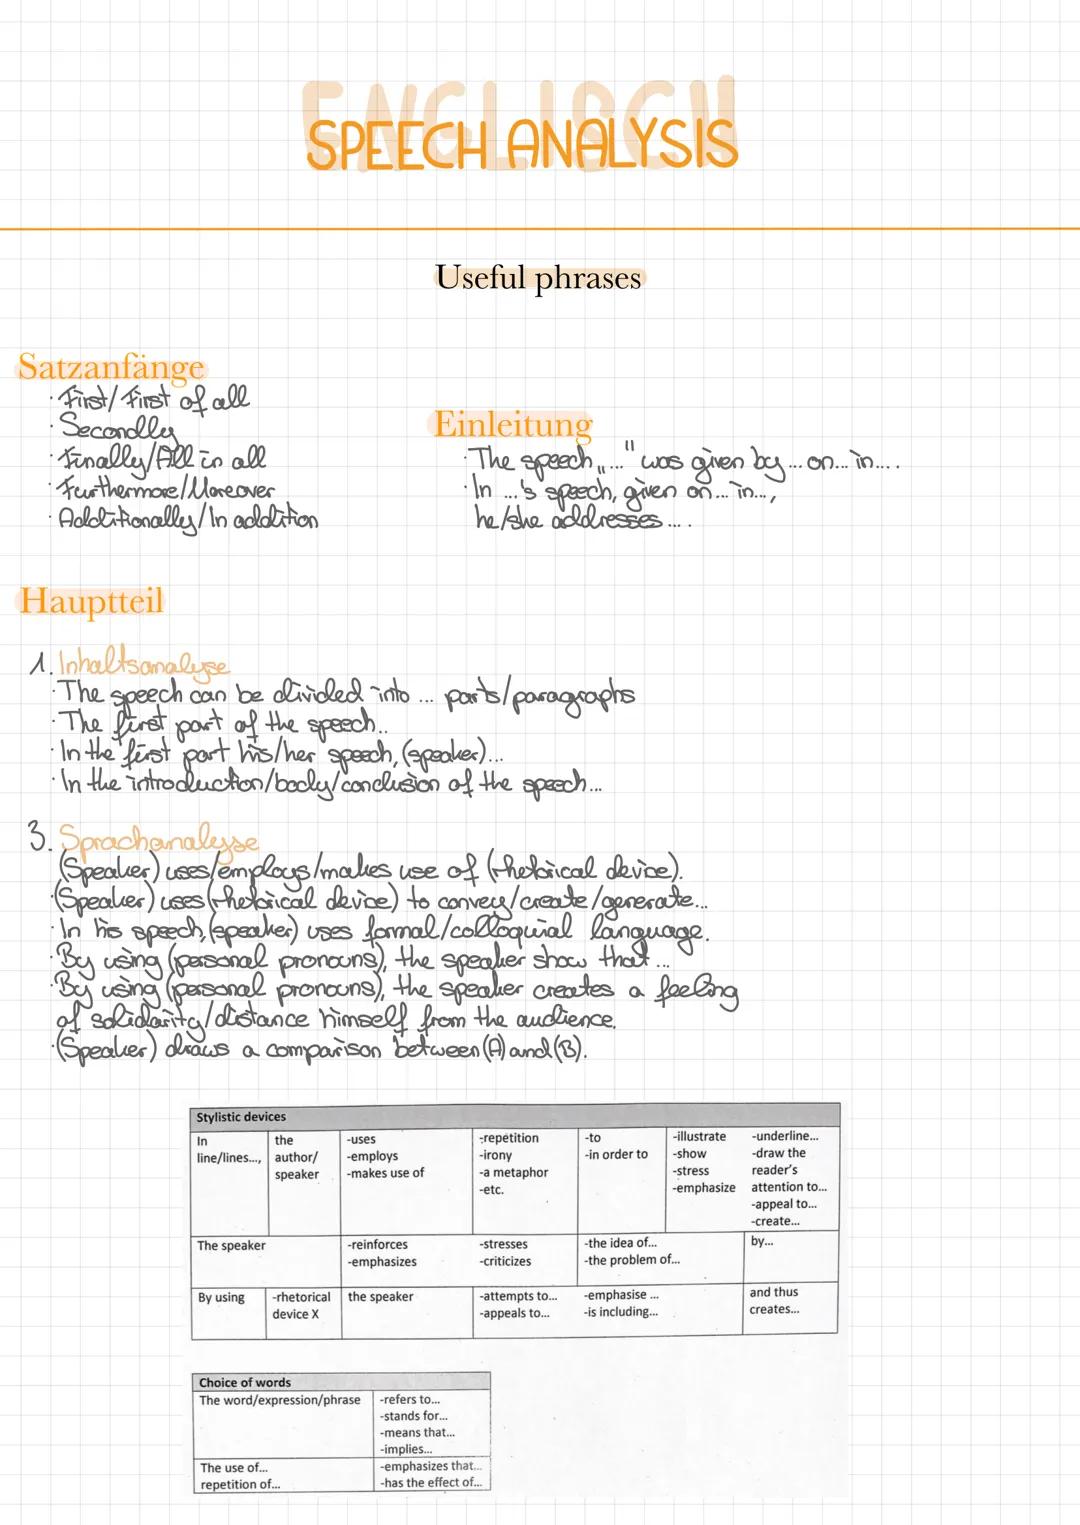 ENGLISCH
SPEECH ANALYSIS
Useful phrases
Satzanfänge
· First/First of all
· Secondly
· Finally/All in all
· Furthermore/Moreover
· Additionally/In addition
Einleitung
· The speech „..." was given by ... on... in....
· In ...'s speech, given on ... in...,
he/she addresses ....
Hauptteil
1. Inhaltsanalyse
· The speech can be divided into ... parts/paragraphs
· The first part of the speech...
· In the first part his/her speech, (speaker)...
· In the introduction/body/conclusion of the speech...
3. Sprachanalyse
(Speaker) uses/employs/makes use of (rhetorical device).
· (Speaker) uses (rhetorical device) to convey/create/generate...
· In his speech, (speaker) uses formal/colloquial language.
· By using (personal pronouns), the speaker show that ...
· By using (personal pronouns), the speaker creates a feeling
of solidarity/distance himself from the audience.
· (Speaker) draws a comparison between (A) and (B).
Stylistic devices
In line/lines..., the author/speaker -uses -employs -makes use of -repetition -irony -a metaphor -etc. -to -in order to -illustrate -show -stress -emphasize -underline... -draw the reader's attention to... -appeal to... -create...
The speaker -reinforces -emphasizes -stresses -criticizes -the idea of... -the problem of... by...
By using -rhetorical device X the speaker -attempts to... -appeals to... -emphasise ... -is including... and thus creates...
Choice of words
The word/expression/phrase -refers to... -stands for... -means that... -implies...
The use of... repetition of... -emphasizes that... -has the effect of...